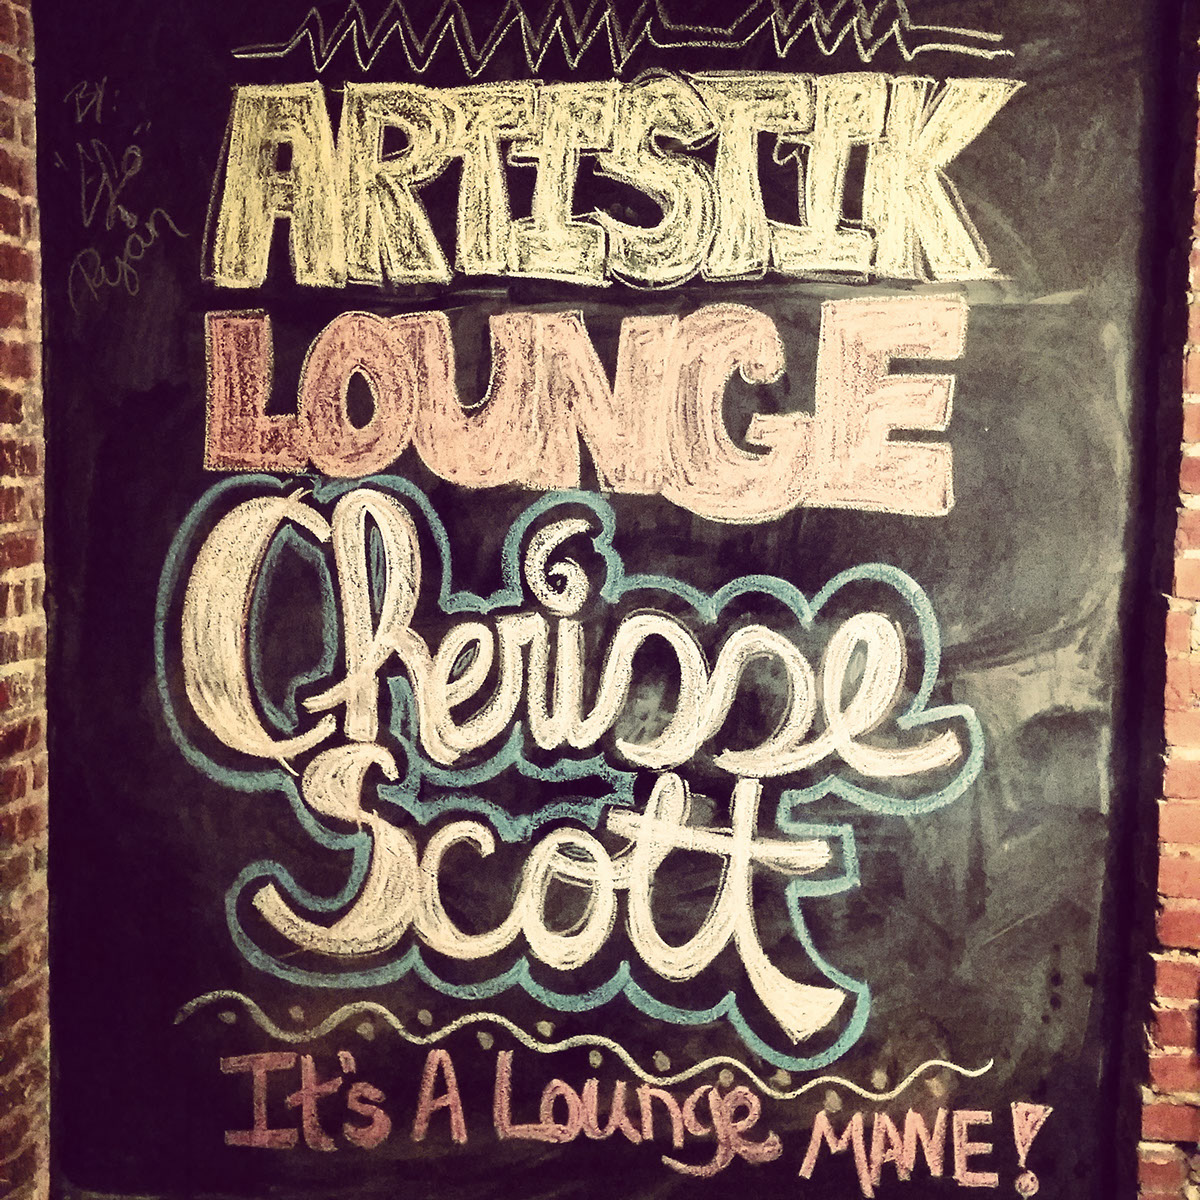 BY:
Ryan
ARTISTIK
LOUNGE
Cherisse
Scott
It's A Lounge MANE!